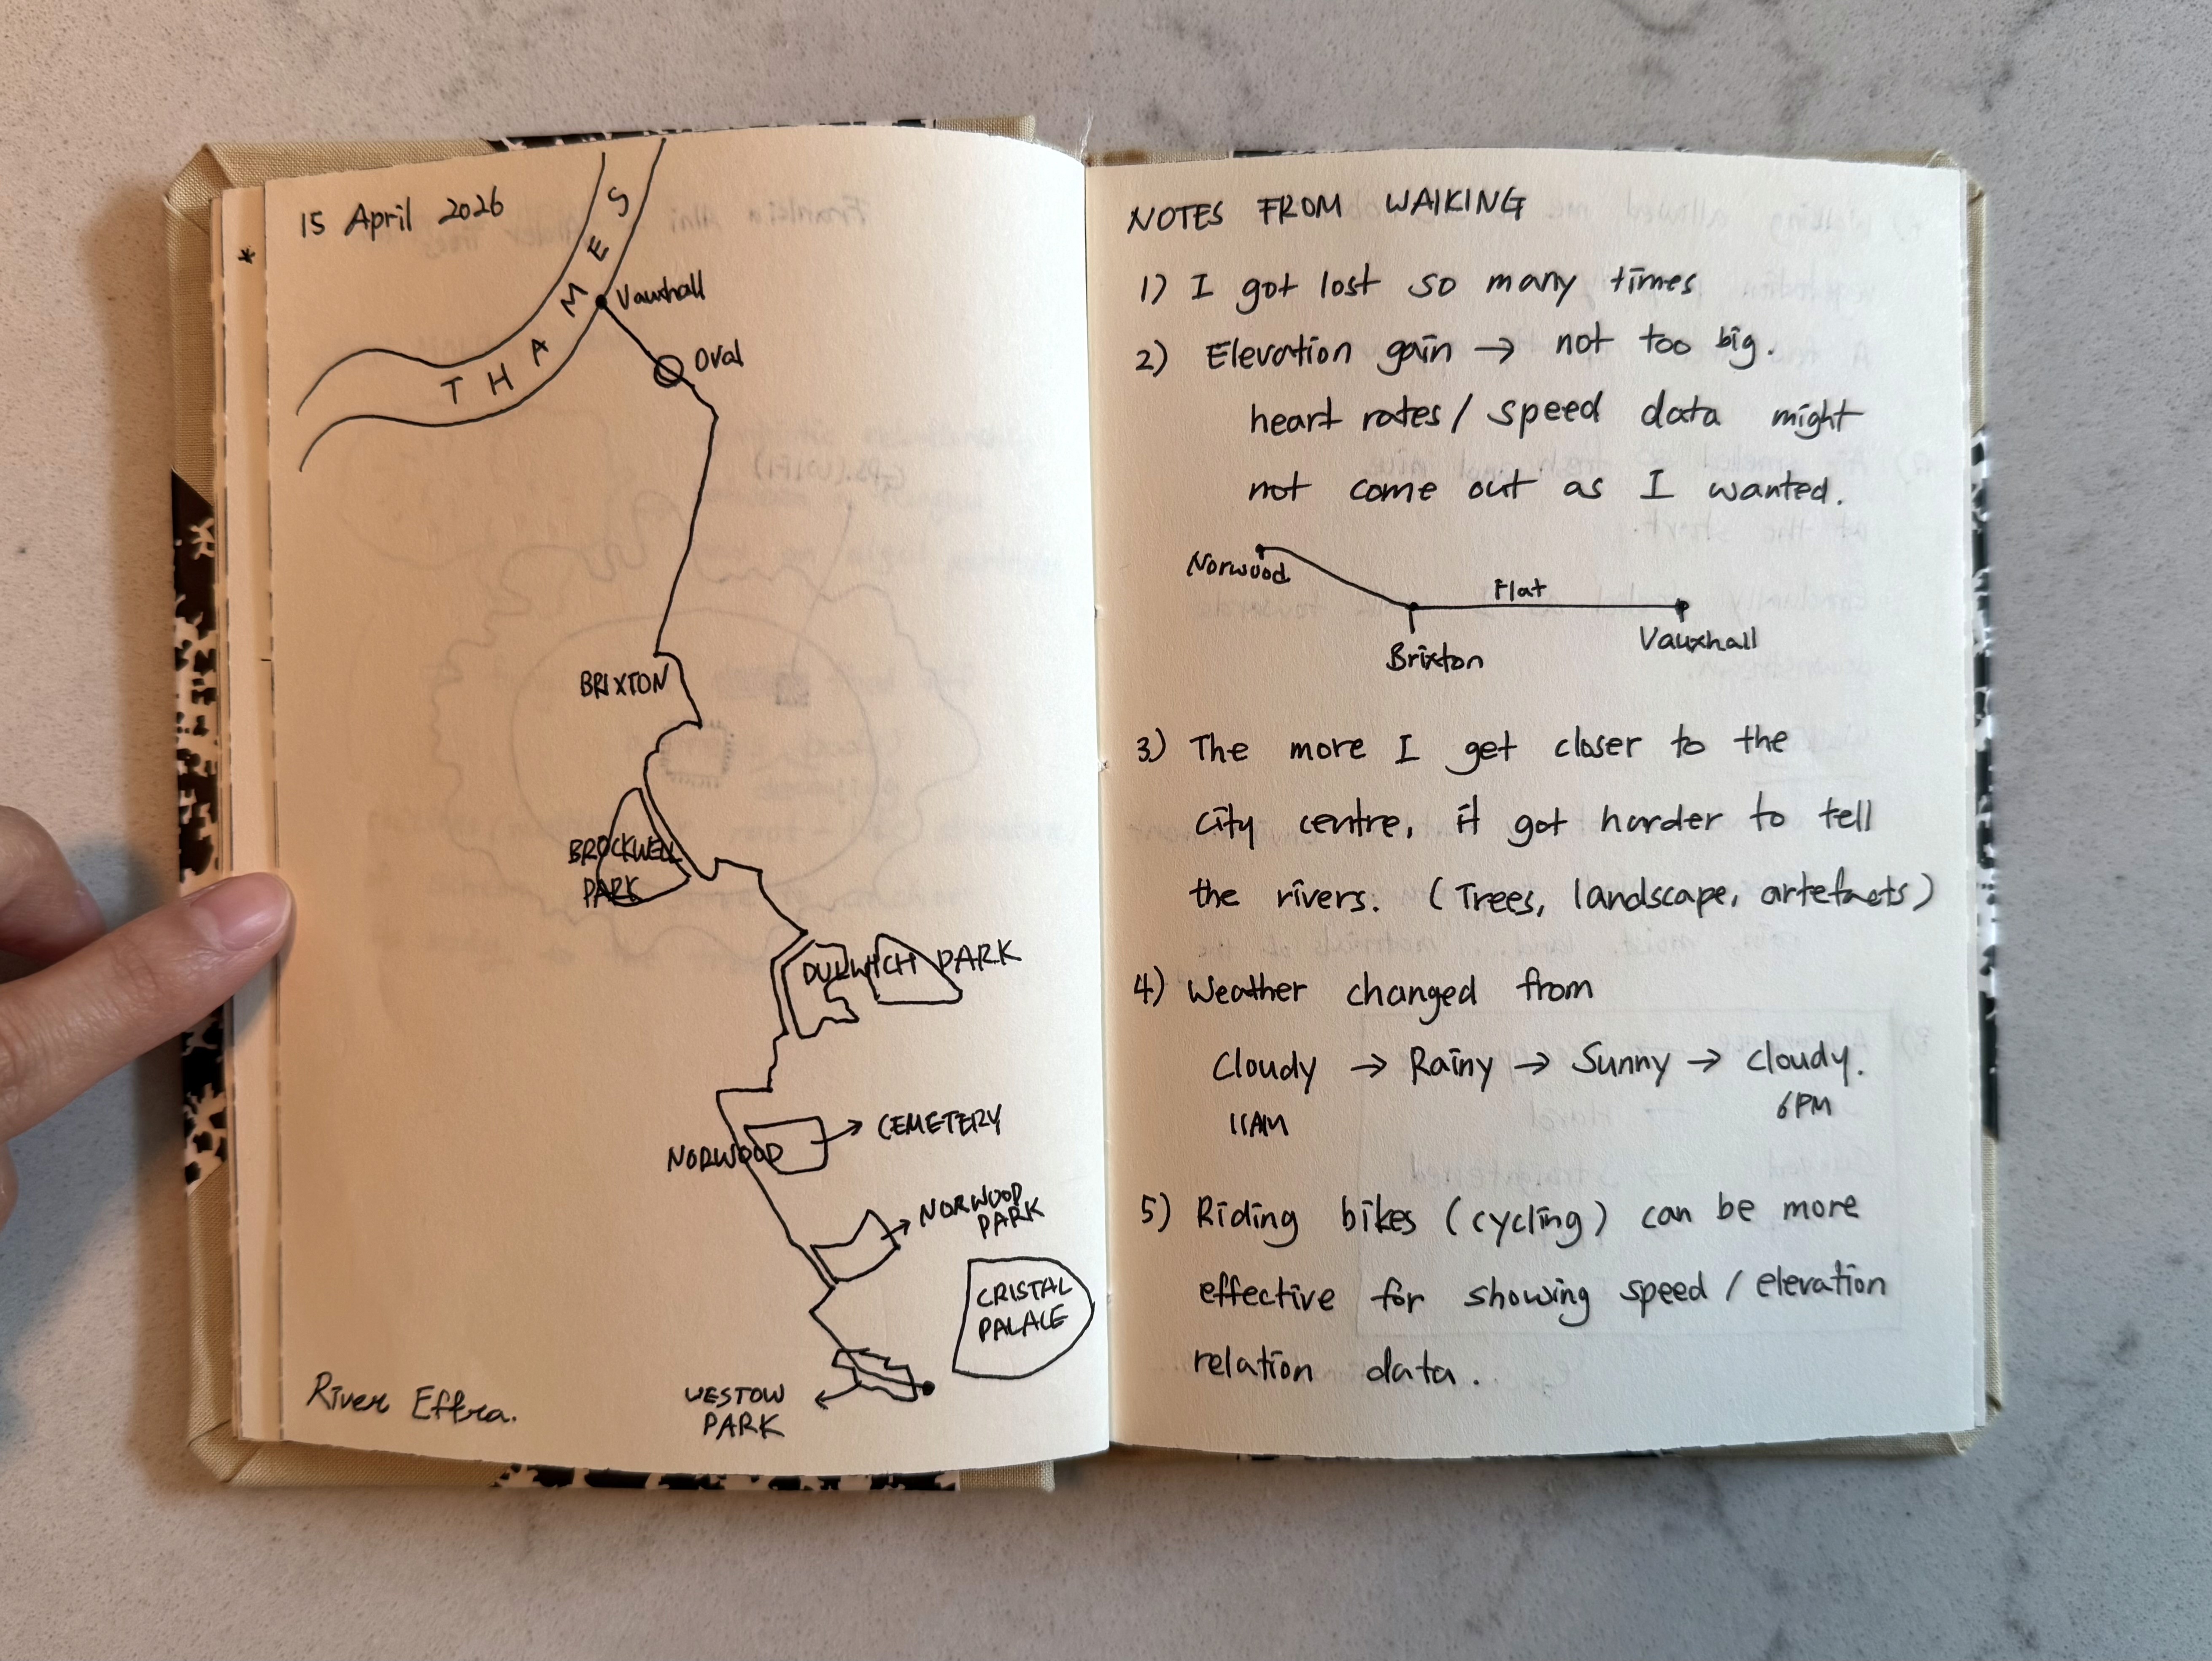 15 April 2026
*
THAMES
Vauxhall
Oval
BRIXTON
BROCKWELL
PARK
DULWICH PARK
CEMETERY
NORWOOD
NORWOOD
PARK
CRISTAL
PALACE
WESTOW
PARK
River Effra.
NOTES FROM WALKING
1) I got lost so many times
2) Elevation gain → not too big.
heart rates / speed data might
not come out as I wanted.
Norwood
Flat
Brixton
Vauxhall
3) The more I get closer to the
city centre, it got harder to tell
the rivers. (Trees, landscape, artefacts)
4) Weather changed from
Cloudy → Rainy → Sunny → cloudy.
11AM
6PM
5) Riding bikes (cycling) can be more
effective for showing speed / elevation
relation data.